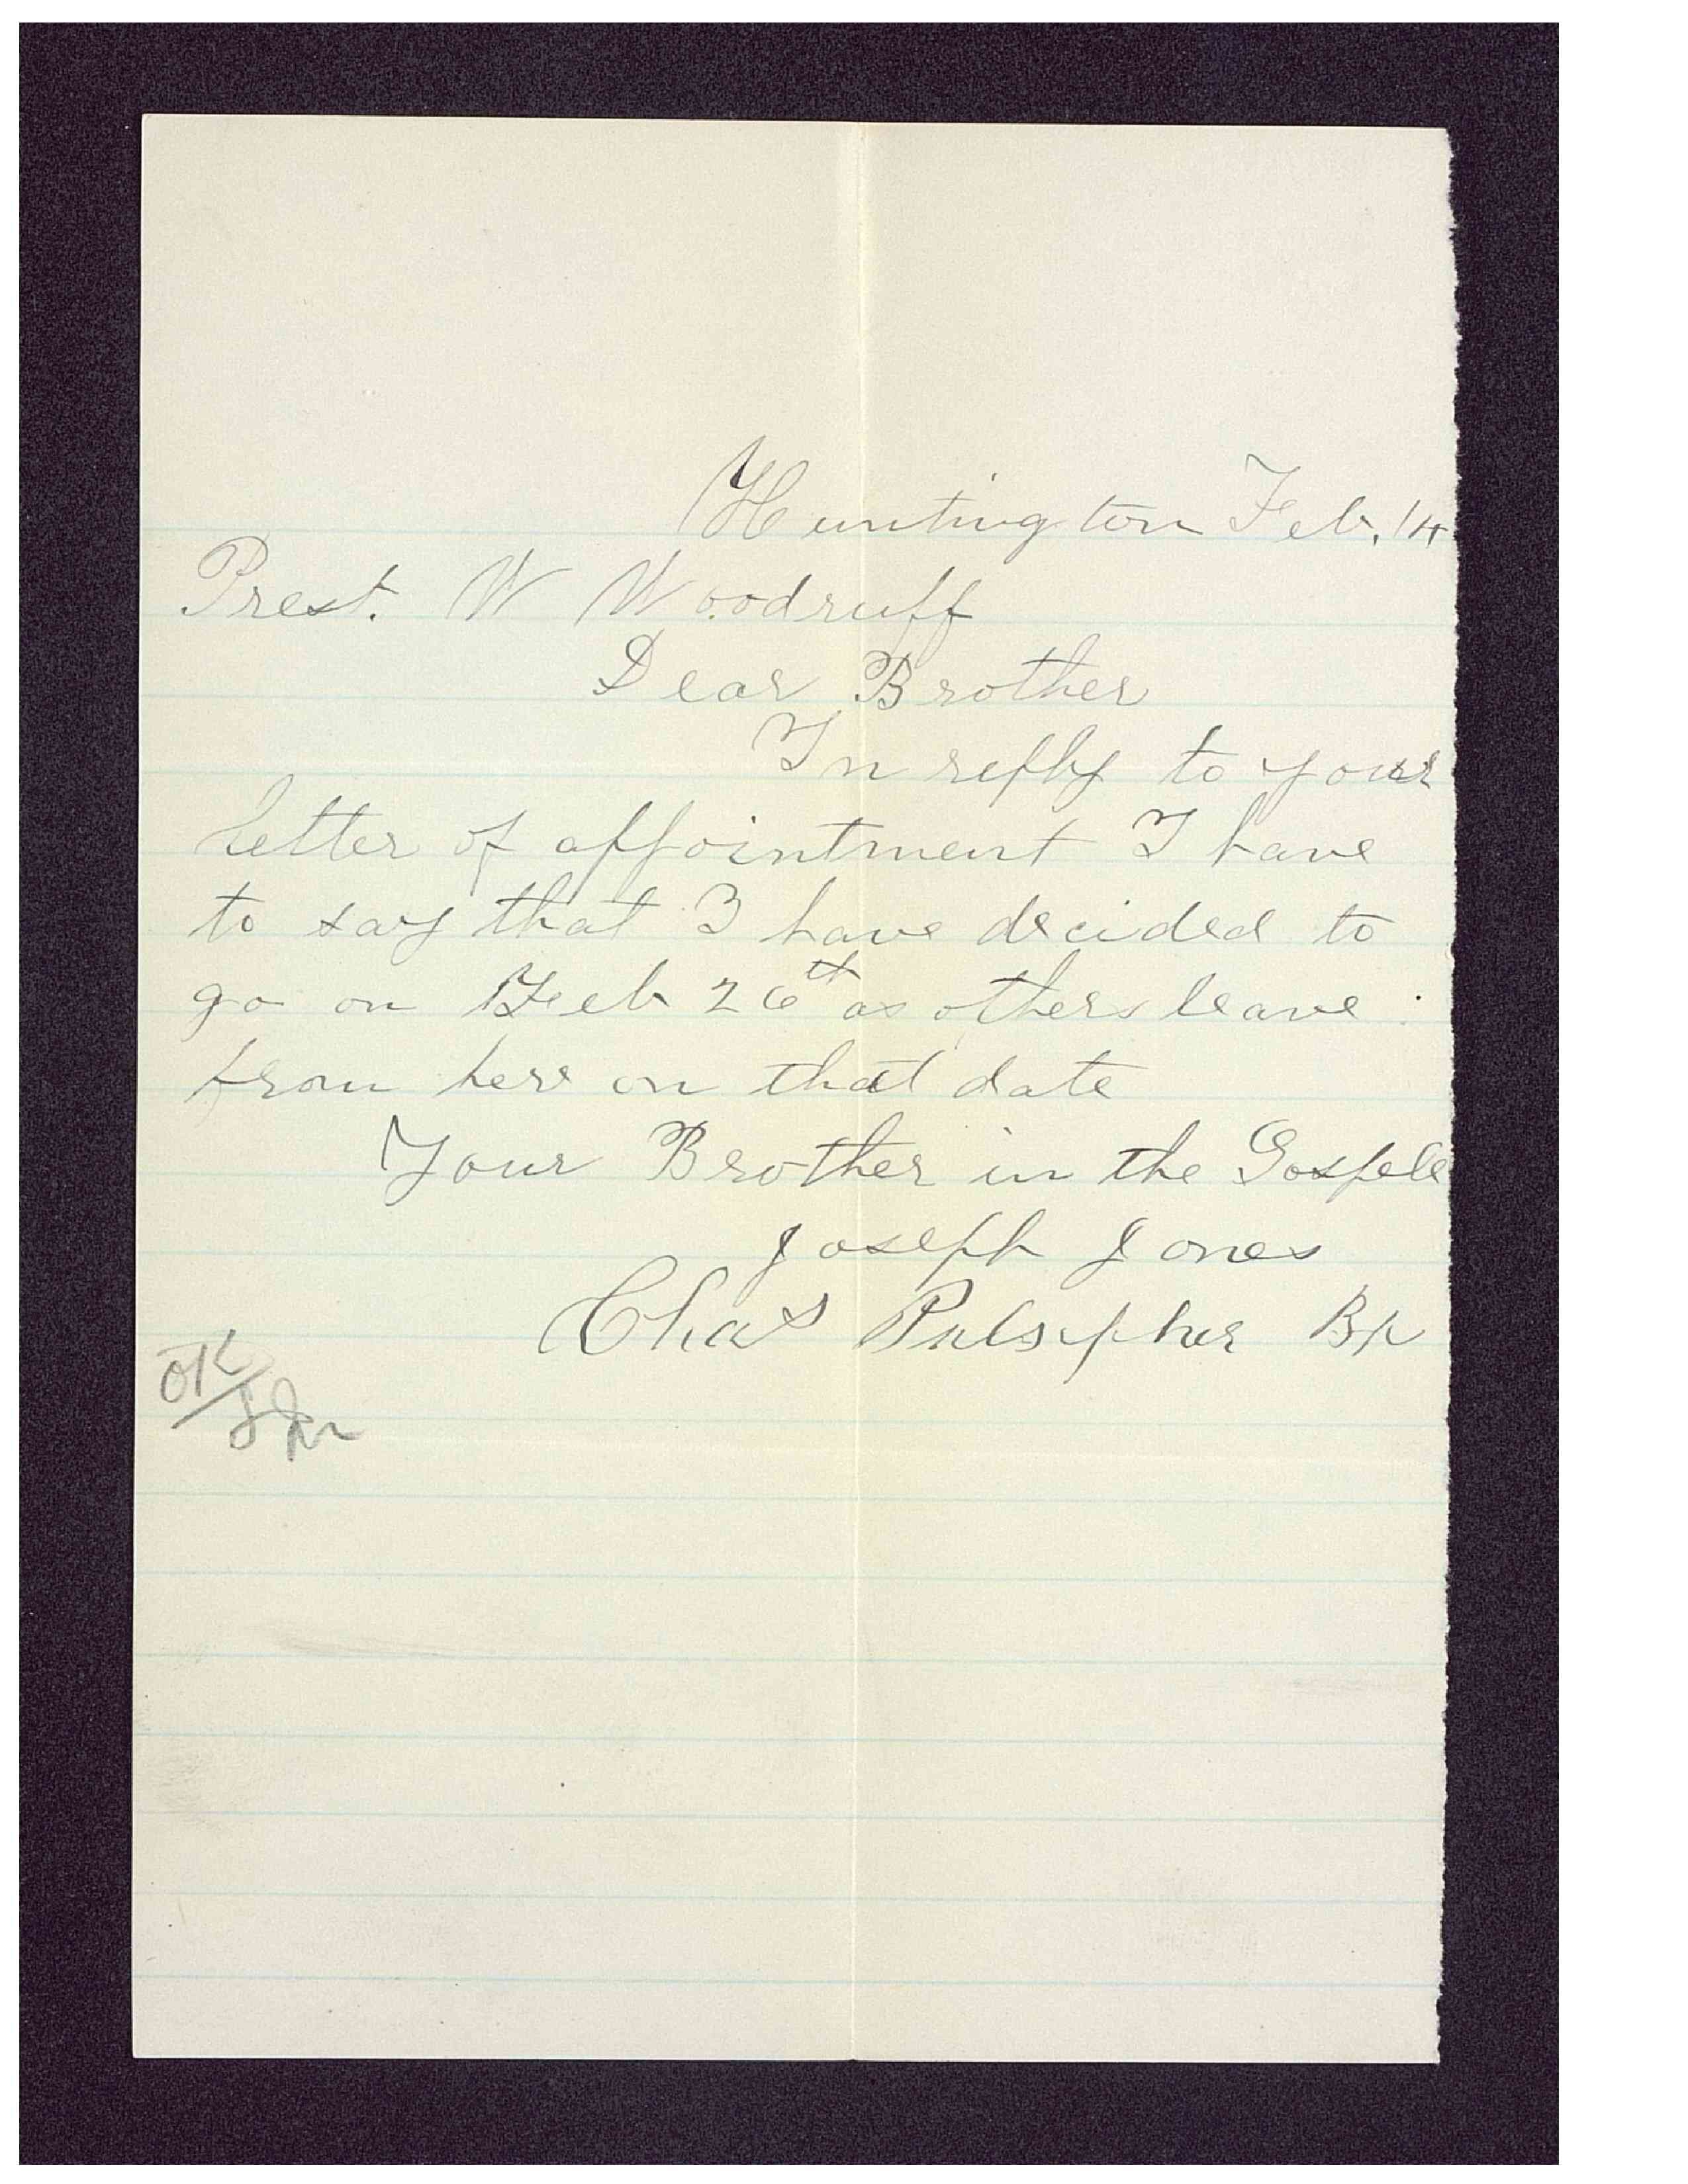 Huntington Feb. 14
Prest. W Woodruff
Dear Brother
In reply to your
letter of appointment I have
to say that I have decided to
go on Feb 26th as others leave
from here on that date
Your Brother in the Gospele
Joseph Jones
Chas Pulsipher Bp
OK